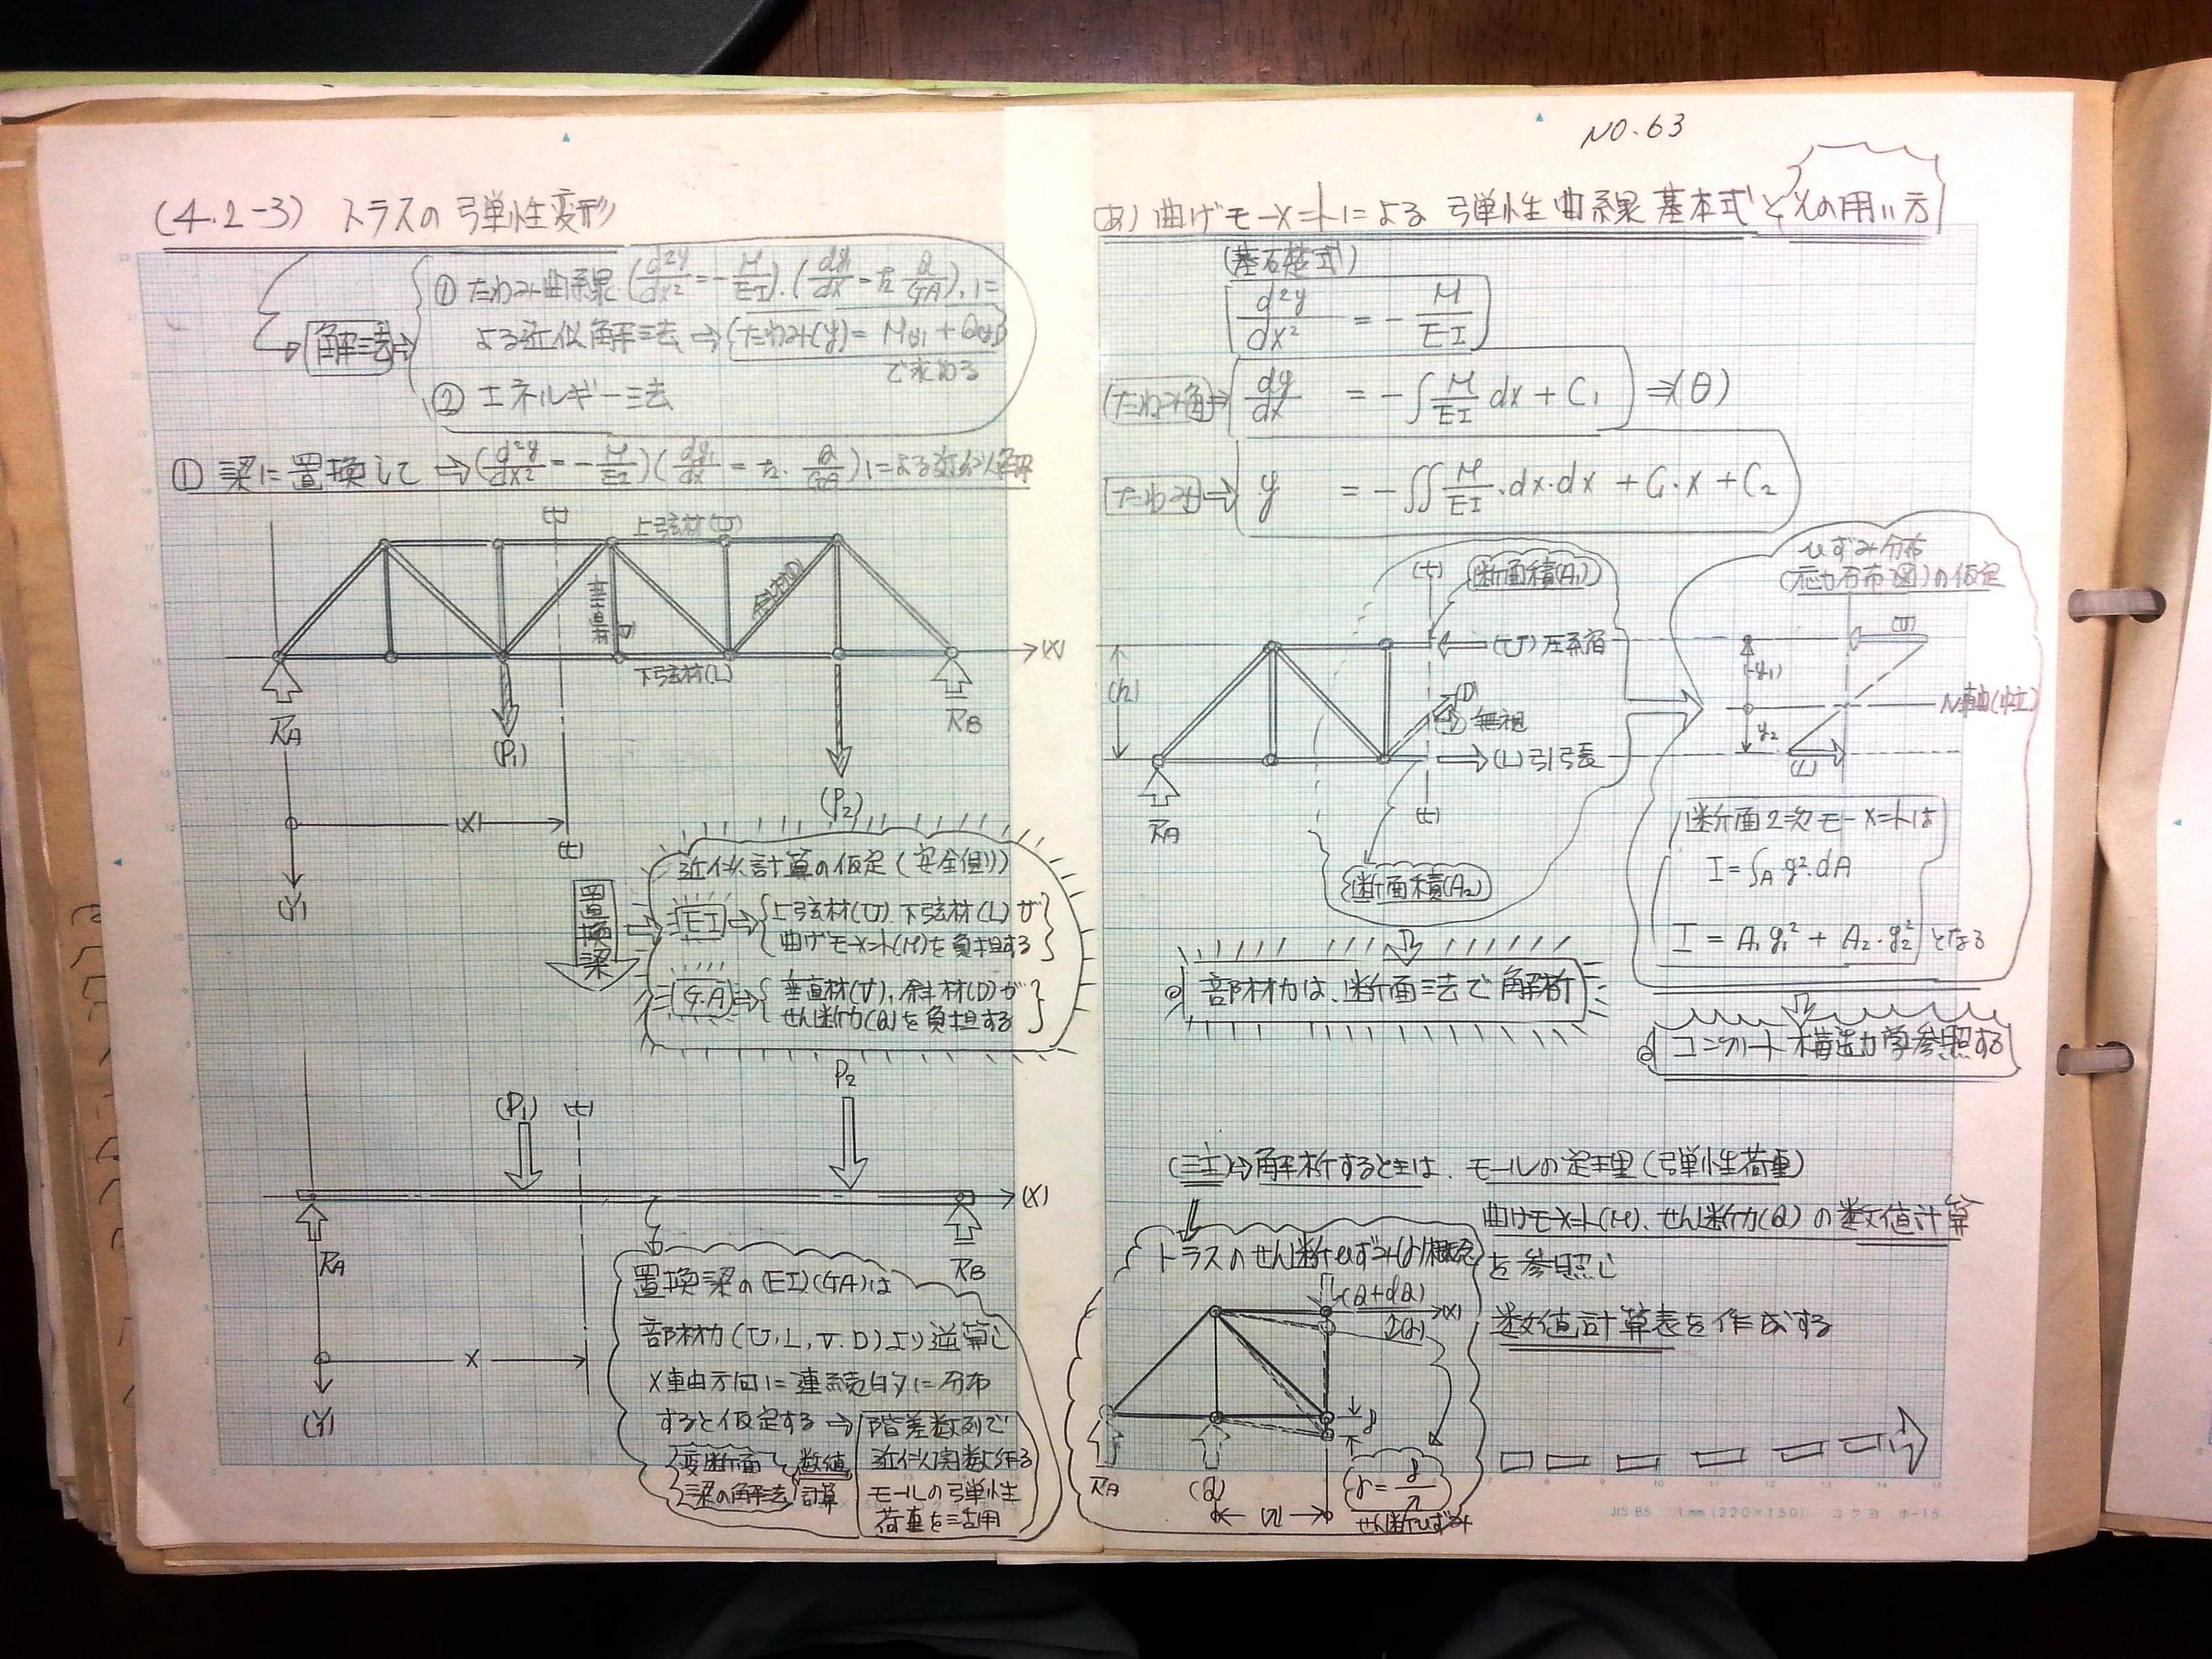 NO.63
(4.2-3) トラスの弾性変形
解法
① たわみ曲線 (d²y/dx² = -M/EI).(dy/dx = k Q/GA).に
よる近似解法 → (たわみ(y) =
で求める
② エネルギー法
① 梁に置換して ⇒ (d²y/dx² = -M/EI)(dy₁/dx = k. Q/GA)による近似解
(t)
上弦材(U)
斜材(D)
垂直材
下弦材(L)
(X)
RA
(P₁)
RB
(P₂)
(X)
(t)
(Y)
置換梁
近似計算の仮定 (安全側)
EI ⇒ 上弦材(U).下弦材(L)が
曲げモーメント(M)を負担する
G.A ⇒ 垂直材(V),斜材(D)が
せん断力(Q)を負担する
(P₁)
(t)
P₂
(X)
RA
RB
X
(Y)
置換梁の(EI)(GA)は
部材力(U,L,V.D)より逆算し
X軸方向に連続的に分布
すると仮定する →
変断面
梁の解法
数値
計算
階差数列で
近似関数作る
モールの弾性
荷重を活用
(あ) 曲げモーメントによる 弾性曲線基本式とその用い方
(基礎式)
d²y/dx² = - M/EI
(たわみ角)⇒ dy/dx = -∫ M/EI dx + C₁ ⇒(θ)
(たわみ)⇒ y = -∬ M/EI .dx.dx + C₁.x + C₂
(t)
断面積(A₁)
(U)圧縮
(h)
(D)
無視
(L)引張
RA
(t)
断面積(A₂)
ひずみ分布
(応力分布図)の仮定
(U)
(y₁)
N軸(中立)
y₂
(L)
断面2次モーメントは
I = ∫A.y².dA
I = A₁y₁² + A₂.y₂² となる
部材力は、断面法で解析
コンクリート構造力学参照する
(注)⇒解析するときは、モールの定理(弾性荷重)
曲げモーメント(M)、せん断力(Q)の数値計算
を参照し
数値計算表を作成する
トラスのせん断ひずみ(γ)概念
(Q+dQ)
(X)
RA
(Q)
(λ)
γ = δ/λ
せん断ひずみ
JIS B5 1mm (220×150) コクヨ ホ-15